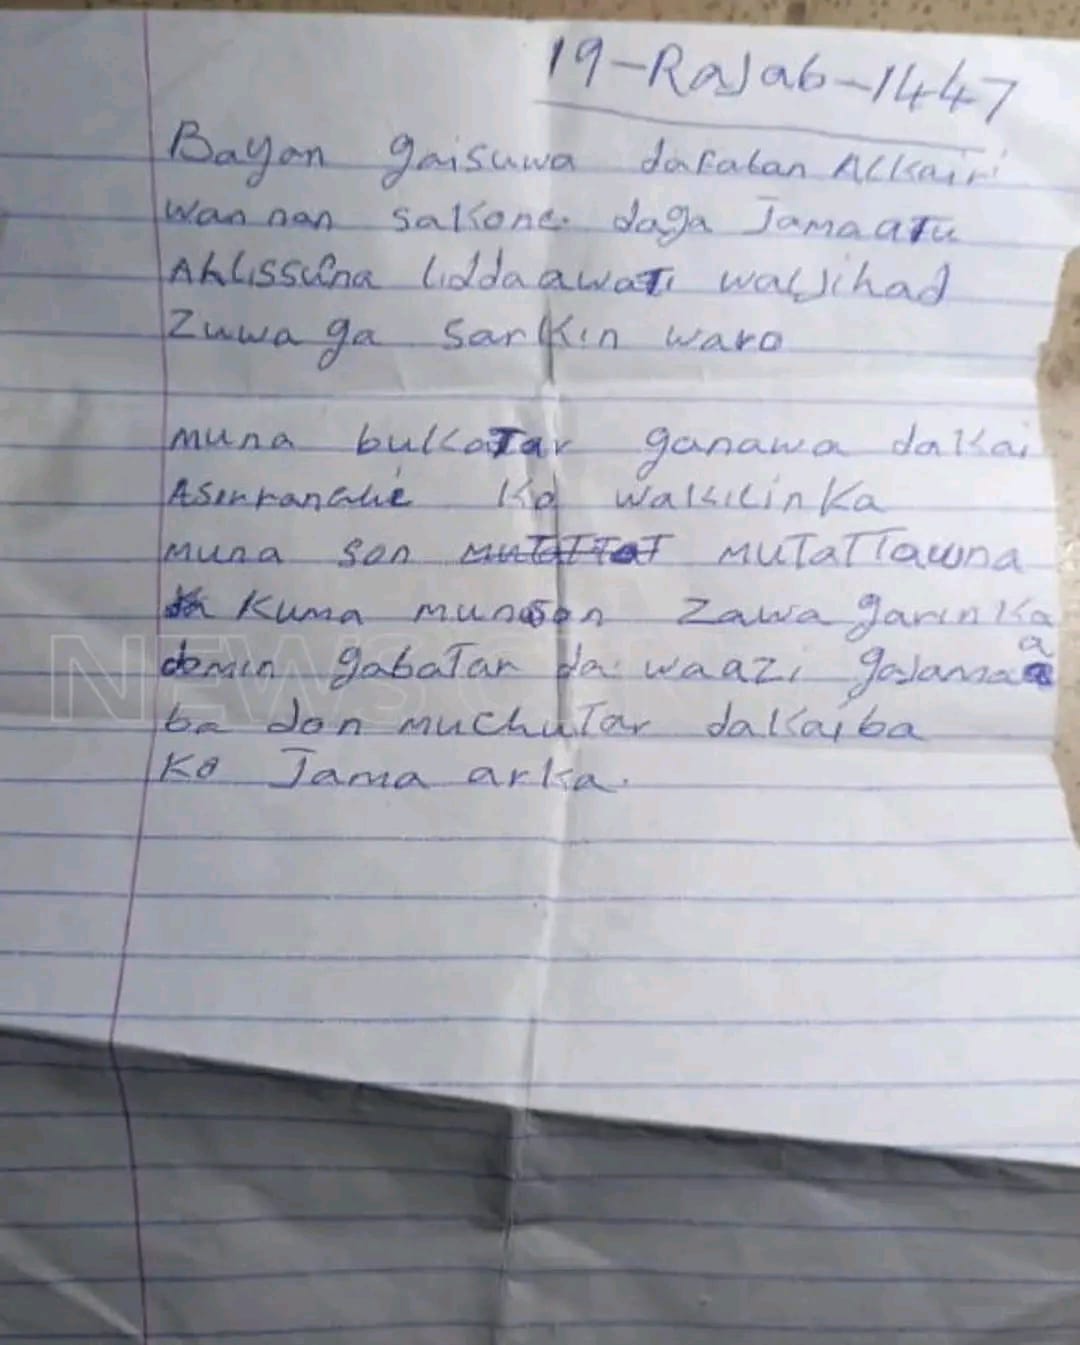 19-Rajab-1447
Bayan gaisuwa dafatan Alkairi
wannan sakone daga Jamaatu
Ahlissuna liddaawati waljihad
Zuwaga sarkin waro
muna bukatar ganawa dakai
Asirrance Ko wakilinka
muna son mutattauna
Kuma munason zawa garinka
domin gabatar da waazi gajamaa
ba don muchutar dakaiba
Ko Jama arka.
NEWS